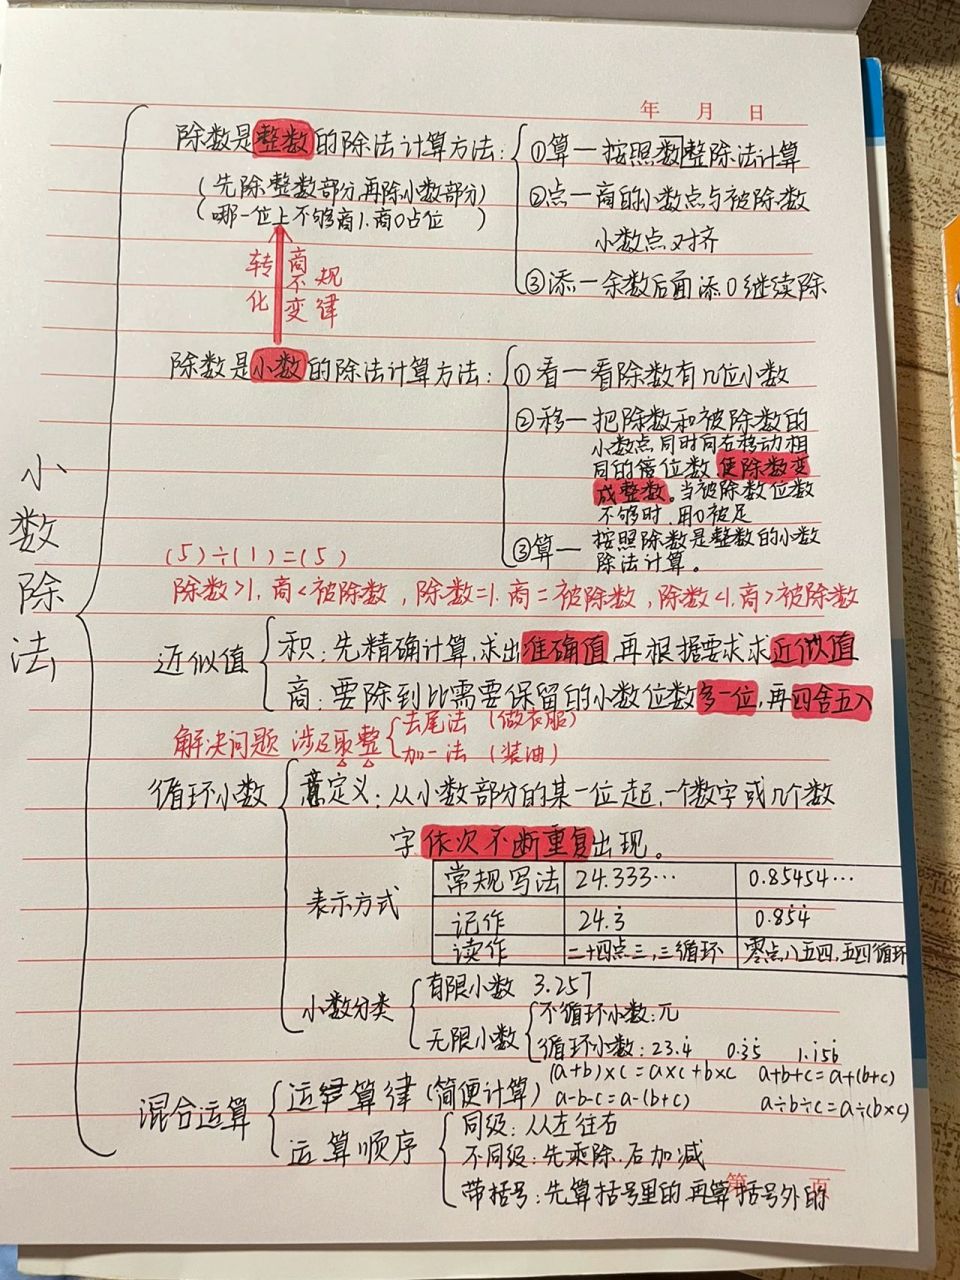 年 月 日
小数除法
除数是整数的除法计算方法:
①算一按照数整除法计算
(先除整数部分再除小数部分)
②点一商的小数点与被除数
(哪一位上不够商1.商0占位)
小数点对齐
转化 商不变规律
③添一余数后面添0继续除
除数是小数的除法计算方法:
①看一看除数有几位小数
②移一把除数和被除数的
小数点同时向右移动相
同的倍位数,使除数变
成整数。当被除数位数
不够时.用0被足
③算一按照除数是整数的小数
除法计算。
(5)÷(1)=(5)
除数>1.商<被除数,除数=1.商=被除数,除数<1.商>被除数
近似值
积:先精确计算,求出准确值,再根据要求求近似值
商:要除到比需要保留的小数位数多一位,再四舍五入
解决问题 涉及取整
去尾法(做衣服)
加一法(装油)
循环小数
意定义:从小数部分的某一位起,一个数字或几个数
字依次不断重复出现。
表示方式
常规写法 24.333… 0.85454…
记作 24.3̇ 0.85̇4̇
读作 二十四点三,三循环 零点八五四,五四循环
小数分类
有限小数 3.257
无限小数
不循环小数:兀
循环小数:23.4̇ 0.3̇5̇ 1.1̇56̇
混合运算
(a+b)×c=a×c+b×c a+b+c=a+(b+c)
运算律(简便计算) a-b-c=a-(b+c) a÷b÷c=a÷(b×c)
运算顺序
同级:从左往右
不同级:先乘除.后加减
第 页
带括号:先算括号里的.再算括号外的